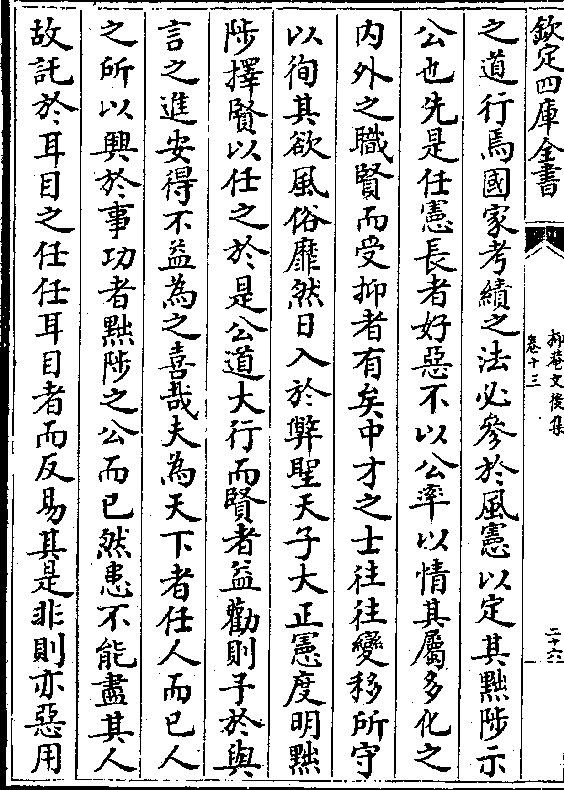 欽定四庫全書
抑菴文後集
卷十三
二十六
之道行焉國家考績之法必參於風憲以定其黜陟示
公也先是任憲長者好惡不以公率以情其屬多化之
内外之職賢而受抑者有矣中才之士往往變移所守
以徇其欲風俗靡然日入於弊聖天子大正憲度明黜
陟擇賢以任之於是公道大行而賢者益勸則予於與
言之進安得不益為之喜哉夫為天下者任人而已人
之所以興於事功者黜陟之公而已然患不能盡其人
故託於耳目之任任耳目者而反易其是非則亦惡用